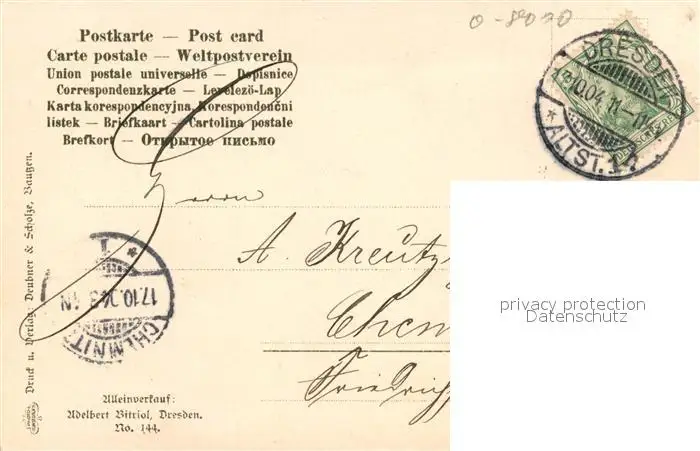 0-8020
Postkarte — Post card
Carte postale — Weltpostverein
Union postale universelle — Dopisnice
Correspondenzkarte — Levelező-Lap
Karta korespondencyjna, Korespondenčni
listek — Brief kaart — Cartolina postale
Brefkort — Открытое письмо
DRESDEN
10.04. 11-
* ALTST. 1
Herrn
A. Kreutz
Chem
Friedrich
CHEMNITZ
1
17.10.04
Druck u. Verlag Deubner & Scholze, Bautzen.
Alleinverkauf:
Adelbert Vitriol, Dresden.
No. 144.
privacy protection
Datenschutz